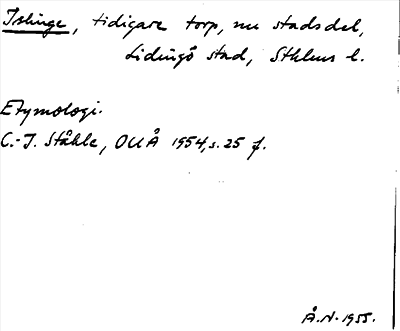 Islinge, tidigare torp, nu stadsdel,
Lidingö stad, Sthlms l.
Etymologi.
C.-I. Ståhle, OUÅ 1954, s. 25 f.
Å.N. 1955.